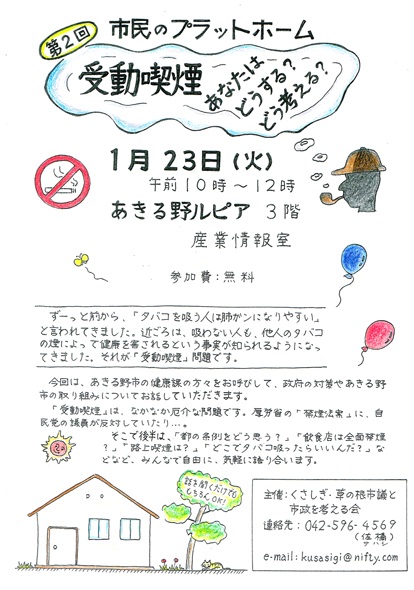 第2回
市民のプラットホーム
受動喫煙
あなたは
どうする?
どう考える?
1月23日(火)
午前10時〜12時
あきる野ルピア 3階
産業情報室
参加費:無料
ずーっと前から、「タバコを吸う人は肺ガンになりやすい」
と言われてきました。近ごろは、吸わない人も、他人のタバコ
の煙によって健康を害されるという事実が知られるようになっ
てきました。それが「受動喫煙」問題です。
今回は、あきる野市の健康課の方々をお呼びして、政府の対策やあきる野
市の取り組みについてお話していただきます。
「受動喫煙」は、なかなか厄介な問題です。厚労省の「禁煙法案」に、自
民党の議員が反対していたり…。
そこで後半は、「都の条例をどう思う?」「飲食店は全面禁煙
?」「路上喫煙は?」「どこでタバコ吸ったらいいんだ?」な
どなど、みんなで自由に、気軽に語り合います。
話を聞くだけでも
もちろんOK!
主催:くさしぎ・草の根市議と
市政を考える会
連絡先:042-596-4569
(佐橋)
サハシ
e-mail:kusasigi@nifty.com